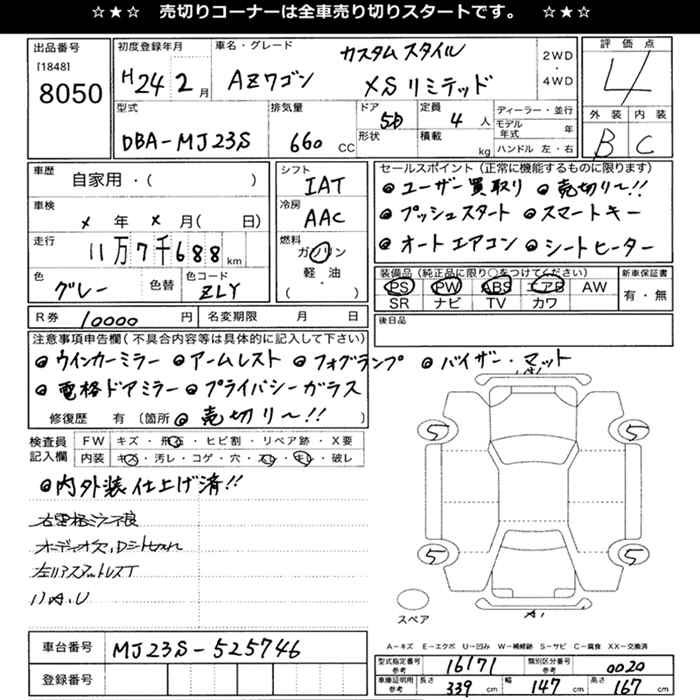 ☆★☆ 売切りコーナーは全車売り切りスタートです。 ☆★☆
出品番号
[1848]
8050
初度登録年月
H24 2月
車名・グレード
カスタムスタイル
AZワゴン XSリミテッド
2WD
・
4WD
評価点
4
外装 内装
B C
型式
DBA-MJ23S
排気量
660 CC
ドア
5D
形状
定員
4人
積載
kg
ディーラー・並行
モデル年式 年
ハンドル 左・右
車歴
自家用・( )
車検
× 年 × 月( 日)
走行
11万7千688km
色
グレー
色替
色コード
ZLY
シフト
IAT
冷房
AAC
燃料
ガソリン
軽・油
( ・ )
セールスポイント(正常に機能するものに限ります)
ユーザー買取り 売切り〜!!
プッシュスタート スマートキー
オートエアコン シートヒーター
装備品(純正品に限り○をつけてください)
PS PW ABS エアB AW
SR ナビ TV カワ
新車保証書
有・無
R券 10000円
名変期限 月 日
後日品
注意事項申告欄(不具合内容等は具体的に記入して下さい)
ウインカーミラー アームレスト フォグランプ バイザー・マット
電格ドアミラー プライバシーガラス
修復歴 有(箇所 売切り〜!!
検査員記入欄
FW キズ・飛石・ヒビ割・リペア跡・X要
内装 キズ・汚レ・コゲ・穴・スレ・キレ・破レ
内外装仕上げ済!!
右電格ミラー不良
オーディオ欠,Dシート切れ
5 5
5 5
A1
スペア
A-キズ E-エクボ U-凹み W-補修跡 S-サビ C-腐食 XX-交換済
車台番号 MJ23S-525746
登録番号
型式指定番号参考 16171
類別区分番号参考 0020
車庫証明用参考 長さ 339cm 幅 147cm 高さ 167cm